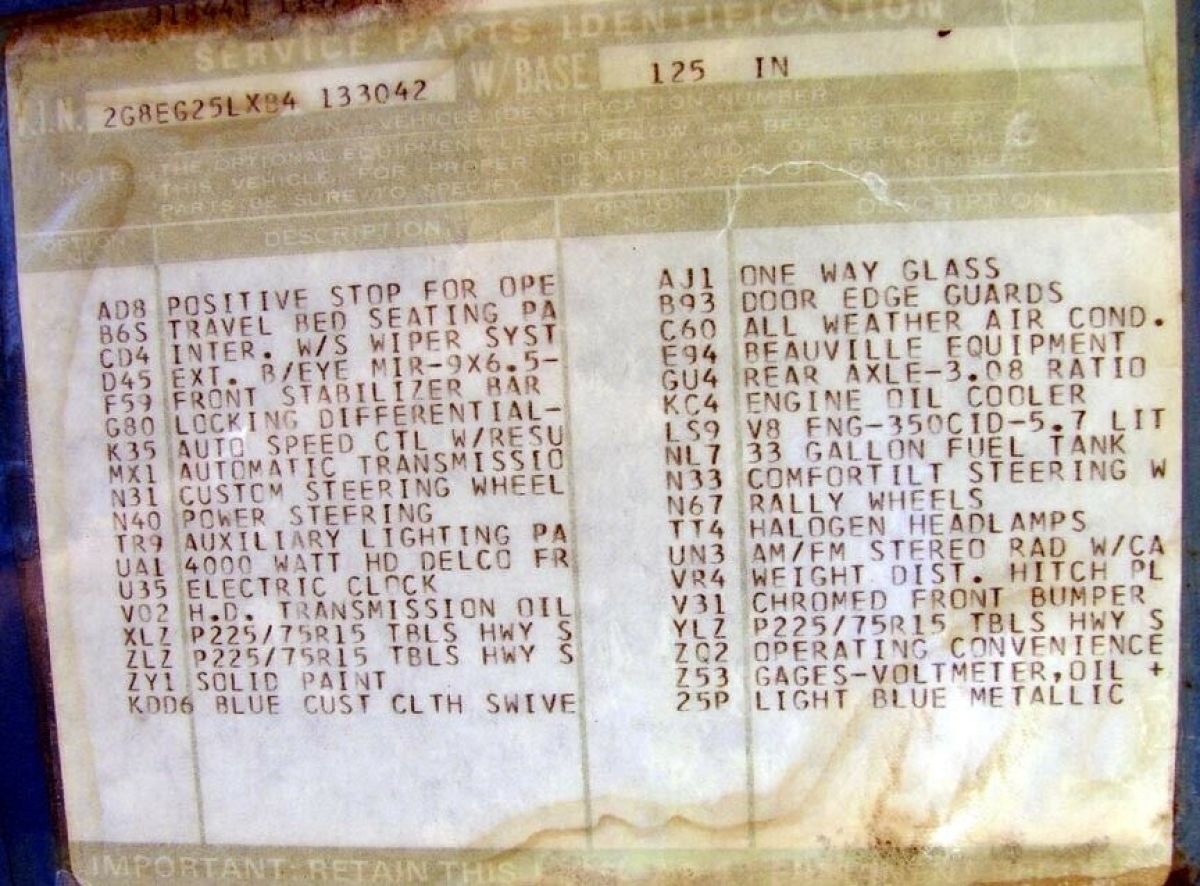 SERVICE PARTS IDENTIFICATION
V.I.N. 2G8EG25LXB4 133042 W/BASE 125 IN
V.I.N. - VEHICLE IDENTIFICATION NUMBER
NOTE: THE OPTIONAL EQUIPMENT LISTED BELOW HAS BEEN INSTALLED
THIS VEHICLE. FOR PROPER IDENTIFICATION OF REPLACEMENT
PARTS BE SURE TO SPECIFY THE APPLICABLE OPTION NUMBERS
OPTION NO. DESCRIPTION OPTION NO. DESCRIPTION
AD8 POSITIVE STOP FOR OPE
B6S TRAVEL BED SEATING PA
CD4 INTER. W/S WIPER SYST
D45 EXT. B/EYE MIR-9X6.5-
F59 FRONT STABILIZER BAR
G80 LOCKING DIFFERENTIAL-
K35 AUTO SPEED CTL W/RESU
MX1 AUTOMATIC TRANSMISSIO
N31 CUSTOM STEERING WHEEL
N40 POWER STEERING
TR9 AUXILIARY LIGHTING PA
UA1 4000 WATT HD DELCO FR
U35 ELECTRIC CLOCK
V02 H.D. TRANSMISSION OIL
XLZ P225/75R15 TBLS HWY S
ZLZ P225/75R15 TBLS HWY S
ZY1 SOLID PAINT
KDD6 BLUE CUST CLTH SWIVE
AJ1 ONE WAY GLASS
B93 DOOR EDGE GUARDS
C60 ALL WEATHER AIR COND.
E94 BEAUVILLE EQUIPMENT
GU4 REAR AXLE-3.08 RATIO
KC4 ENGINE OIL COOLER
LS9 V8 ENG-350CID-5.7 LIT
NL7 33 GALLON FUEL TANK
N33 COMFORTILT STEERING W
N67 RALLY WHEELS
TT4 HALOGEN HEADLAMPS
UN3 AM/FM STEREO RAD W/CA
VR4 WEIGHT DIST. HITCH PL
V31 CHROMED FRONT BUMPER
YLZ P225/75R15 TBLS HWY S
ZQ2 OPERATING CONVENIENCE
Z53 GAGES-VOLTMETER,OIL +
25P LIGHT BLUE METALLIC
IMPORTANT: RETAIN THIS